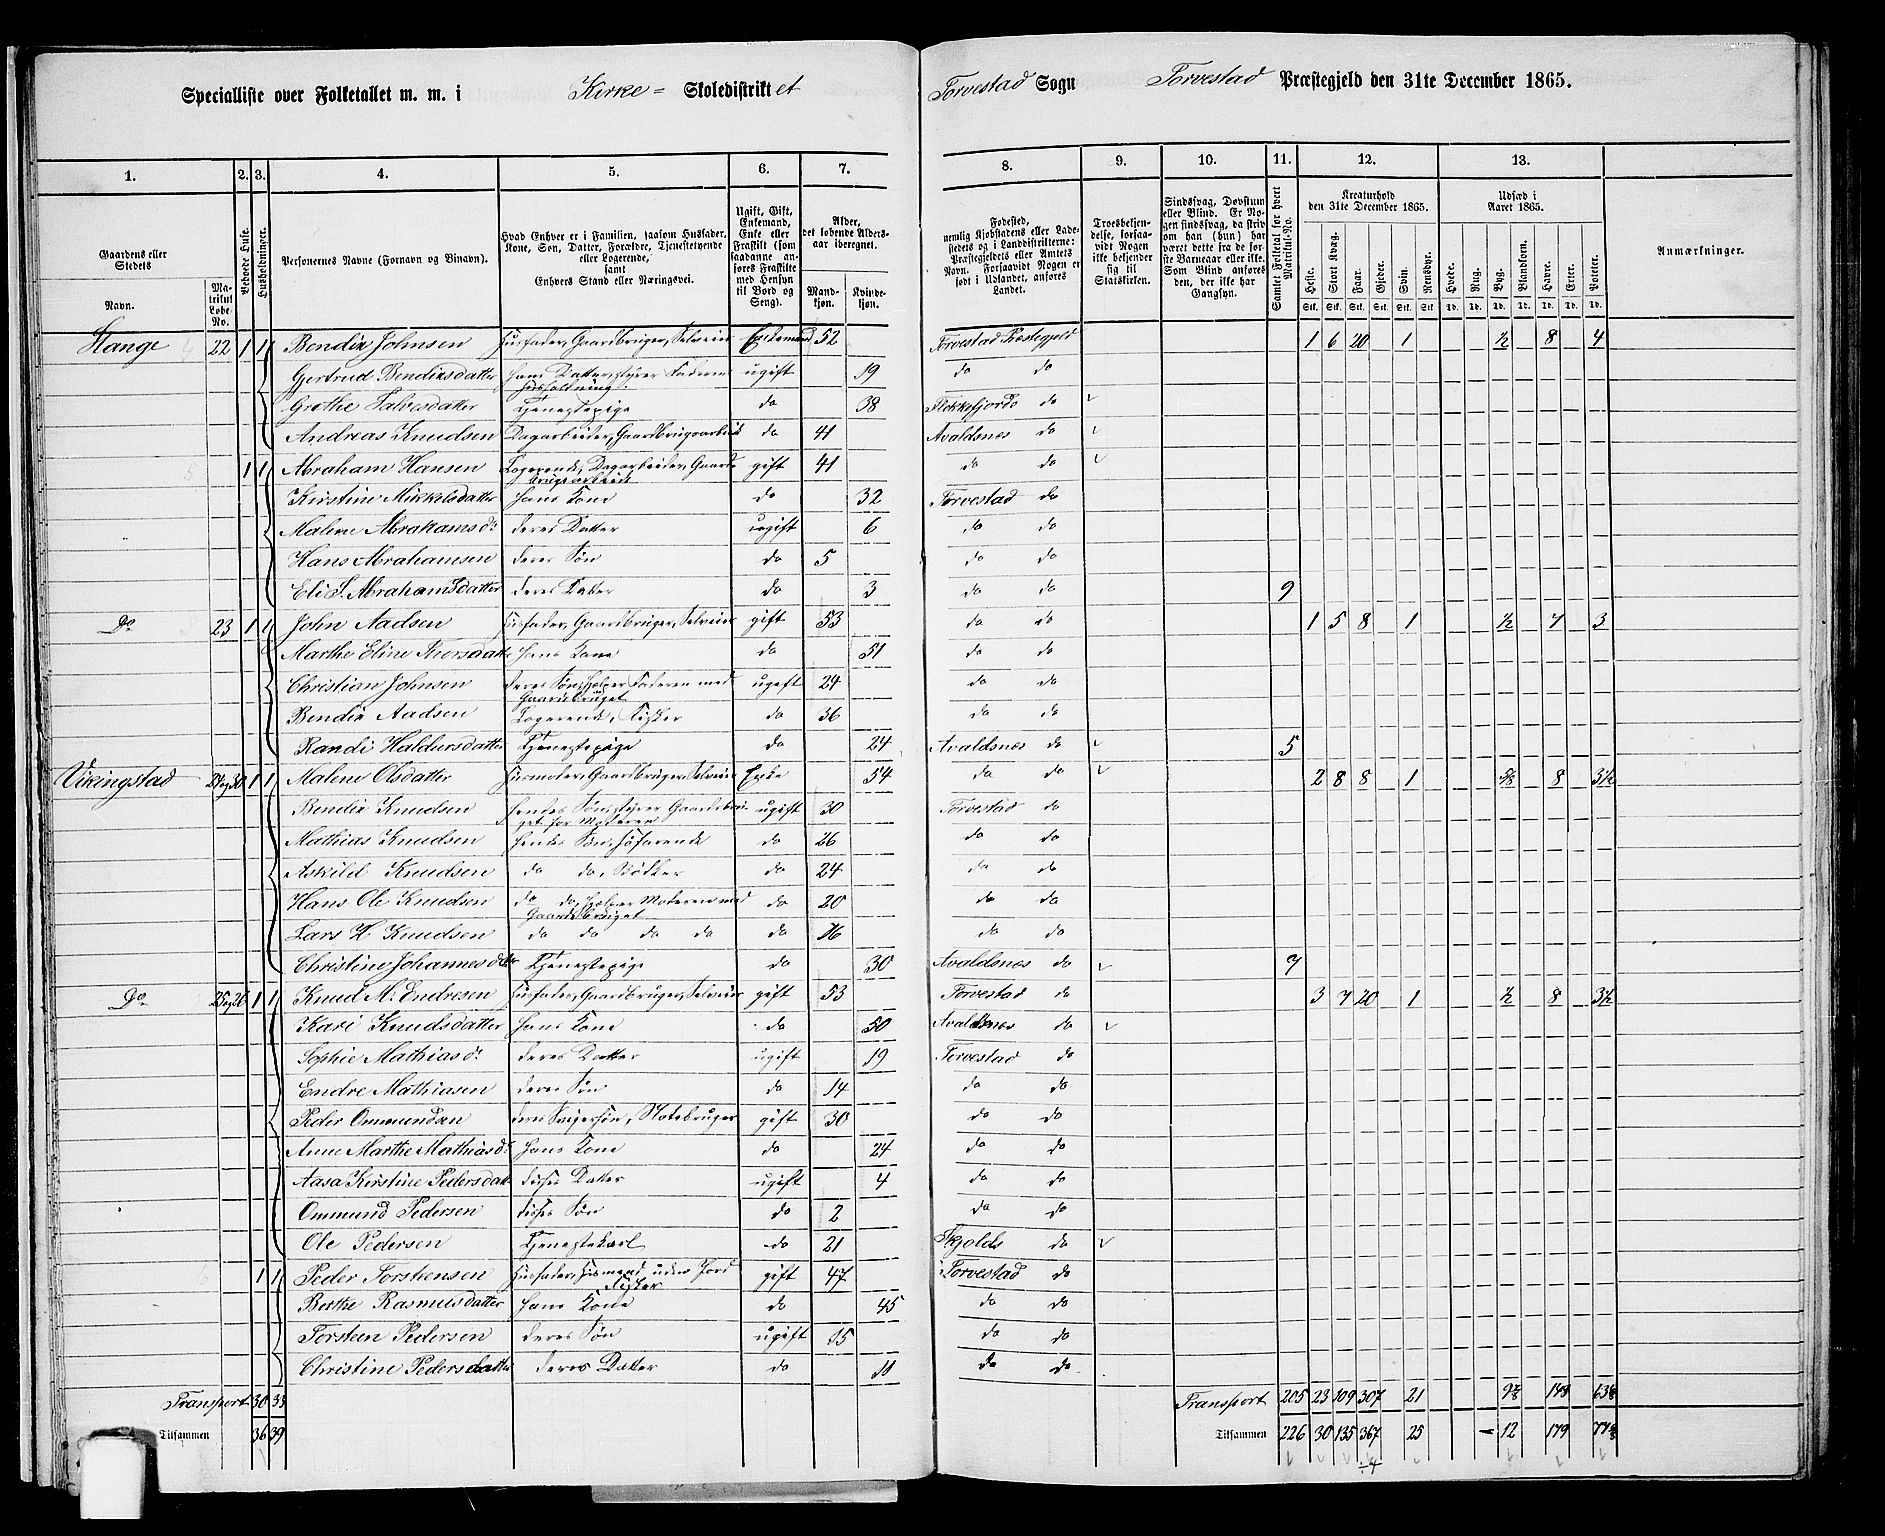 Specialliste over Folketallet m. m. i Kirke= Skoledistriktet Torvestad Sogn Torvestad Præstegjeld den 31te December 1865.
1. 2. 3. 4. 5. 6. 7. 8. 9. 10. 11. 12. 13.
Gaardens eller Stedets
Navn.
Matrikul Løbe-No.
Beboede Huse.
Husholdninger.
Personernes Navne (Fornavn og Binavn).
Hvad Enhver er i Familien, saasom Husfader, Kone, Søn, Datter, Forældre, Tjenestetyende eller Logerende, samt Enhvers Stand eller Næringsvei.
Ugift, Gift, Enkemand, Enke eller Fraskilt (som saadanne anføres Fraskilte med Hensyn til Bord og Seng).
Alder, det løbende Alders-aar iberegnet.
Mandkjøn. Kvindekjøn.
Fødested, nemlig Kjøbstadens eller Ladestedets og i Landdistrikterne: Præstegjeldets eller Amtets Navn. Forsaavidt Nogen er født i Udlandet, anføres Landet.
Troesbekjendelse, forsaavidt Nogen ikke bekjender sig til Statskirken.
Sindssvag, Døvstum eller Blind. Er Nogen sindssvag, da skrives om han (hun) har været dette fra de første Barneaar eller ikke. Som Blind anføres den, der ikke har Gangsyn.
Samlet Folketal for hvert Matrikul-No.
Kreaturhold den 31te December 1865.
Heste. Stort Kvæg. Faar. Gjeder. Svin. Rensdyr.
Udsæd i Aaret 1865.
Hvede. Rug. Byg. Blandkorn. Havre. Erter. Poteter.
Anmærkninger.
Hange 22 1 1 Bendix Johnsen Husfader, Gaardbruger, Selveier Enkemand 52 Torvestad Præstegjeld 1 6 20 1 ½ 8 4
Gjertrud Bendixsdatter hans Datter, styrer Faderens Husholdning ugift 19 do do
Grethe Salvesdatter Tjenestepige do 38 Flekkefjords do
Andreas Knudsen Dagarbeider, Gaardbrugsarbeid do 41 Avaldsnes do
1 1 Abraham Hansen Logerende, Dagarbeider, Gaardsbrugsarbeid gift 41 do do
Kirstine Mikkelsdatter hans Kone do 32 Torvestad do
Malene Abrahamsd. deres Datter ugift 6 do do
Hans Abrahamsen deres Søn do 5 do do
Eli S. Abrahamsdatter deres Datter do 3 do do 9
Do 23 1 1 John Aadsen Husfader, Gaardbruger, Selveier gift 53 do do 1 5 8 1 ½ 7 3
Marthe Eline Thorsdatter hans Kone do 51 do do
Christian Johnsen deres Søn, hjelper Faderen med Gaardsbruget ugift 24 do do
Bendix Aadsen Logerende, Fisker do 36 do do
Randi Haldorsdatter Tjenestepige do 24 Avaldsnes do 5
Vikingstad 24 og 30 1 1 Malene Olsdatter Husmoder, Gaardbruger, Selveier Enke 54 do do 2 8 8 1 8 3½
Bendix Knudsen Hendes Søn, styrer Gaardsbruget for Moderen ugift 30 Torvestad do
Mathias Knudsen Hendes Søn, søfarende do 26 do do
Askild Knudsen do do, Bødker do 24 do do
Hans Ole Knudsen do do, hjelper Moderen med Gaardsbruget do 20 do do
Lars H Knudsen do do do do do 16 do do
Christine Johannesdatter Tjenestepige do 30 Avaldsnes do 7
Do 25 og 26 1 1 Knud M. Endresen Husfader, Gaardbruger, Selveier gift 53 Torvestad do 3 7 20 1 ½ 8 3½
Kari Knudsdatter hans Kone do 50 Avaldsnes do
Sophie Mathiasd. deres Datter ugift 19 Torvestad do
Endre Mathiasen deres Søn do 14 do do
Peder Ommundsen deres Svigersøn, Notebruger gift 30 do do
Anne Marthe Mathiasd. hans Kone do 24 do do
Aasa Kirstine Pedersdatter disses Datter ugift 4 do do
Ommund Pedersen disses Søn do 2 do do
Ole Pedersen Tjenestekarl do 21 Skjolds do
1 1 Peder Torstensen Husfader, Husmand uden Jord Fisker gift 47 Torvestad do
Berthe Rasmusdatter hans Kone do 45 do do
Torsteen Pedersen deres Søn ugift 15 do do
Christine Pedersdatter deres Datter do 11 do do
Transport 30 33 Transport 205 23 109 307 21 148
Tilsammen 36 39 Tilsammen 226 30 135 367 25 12 179
÷4